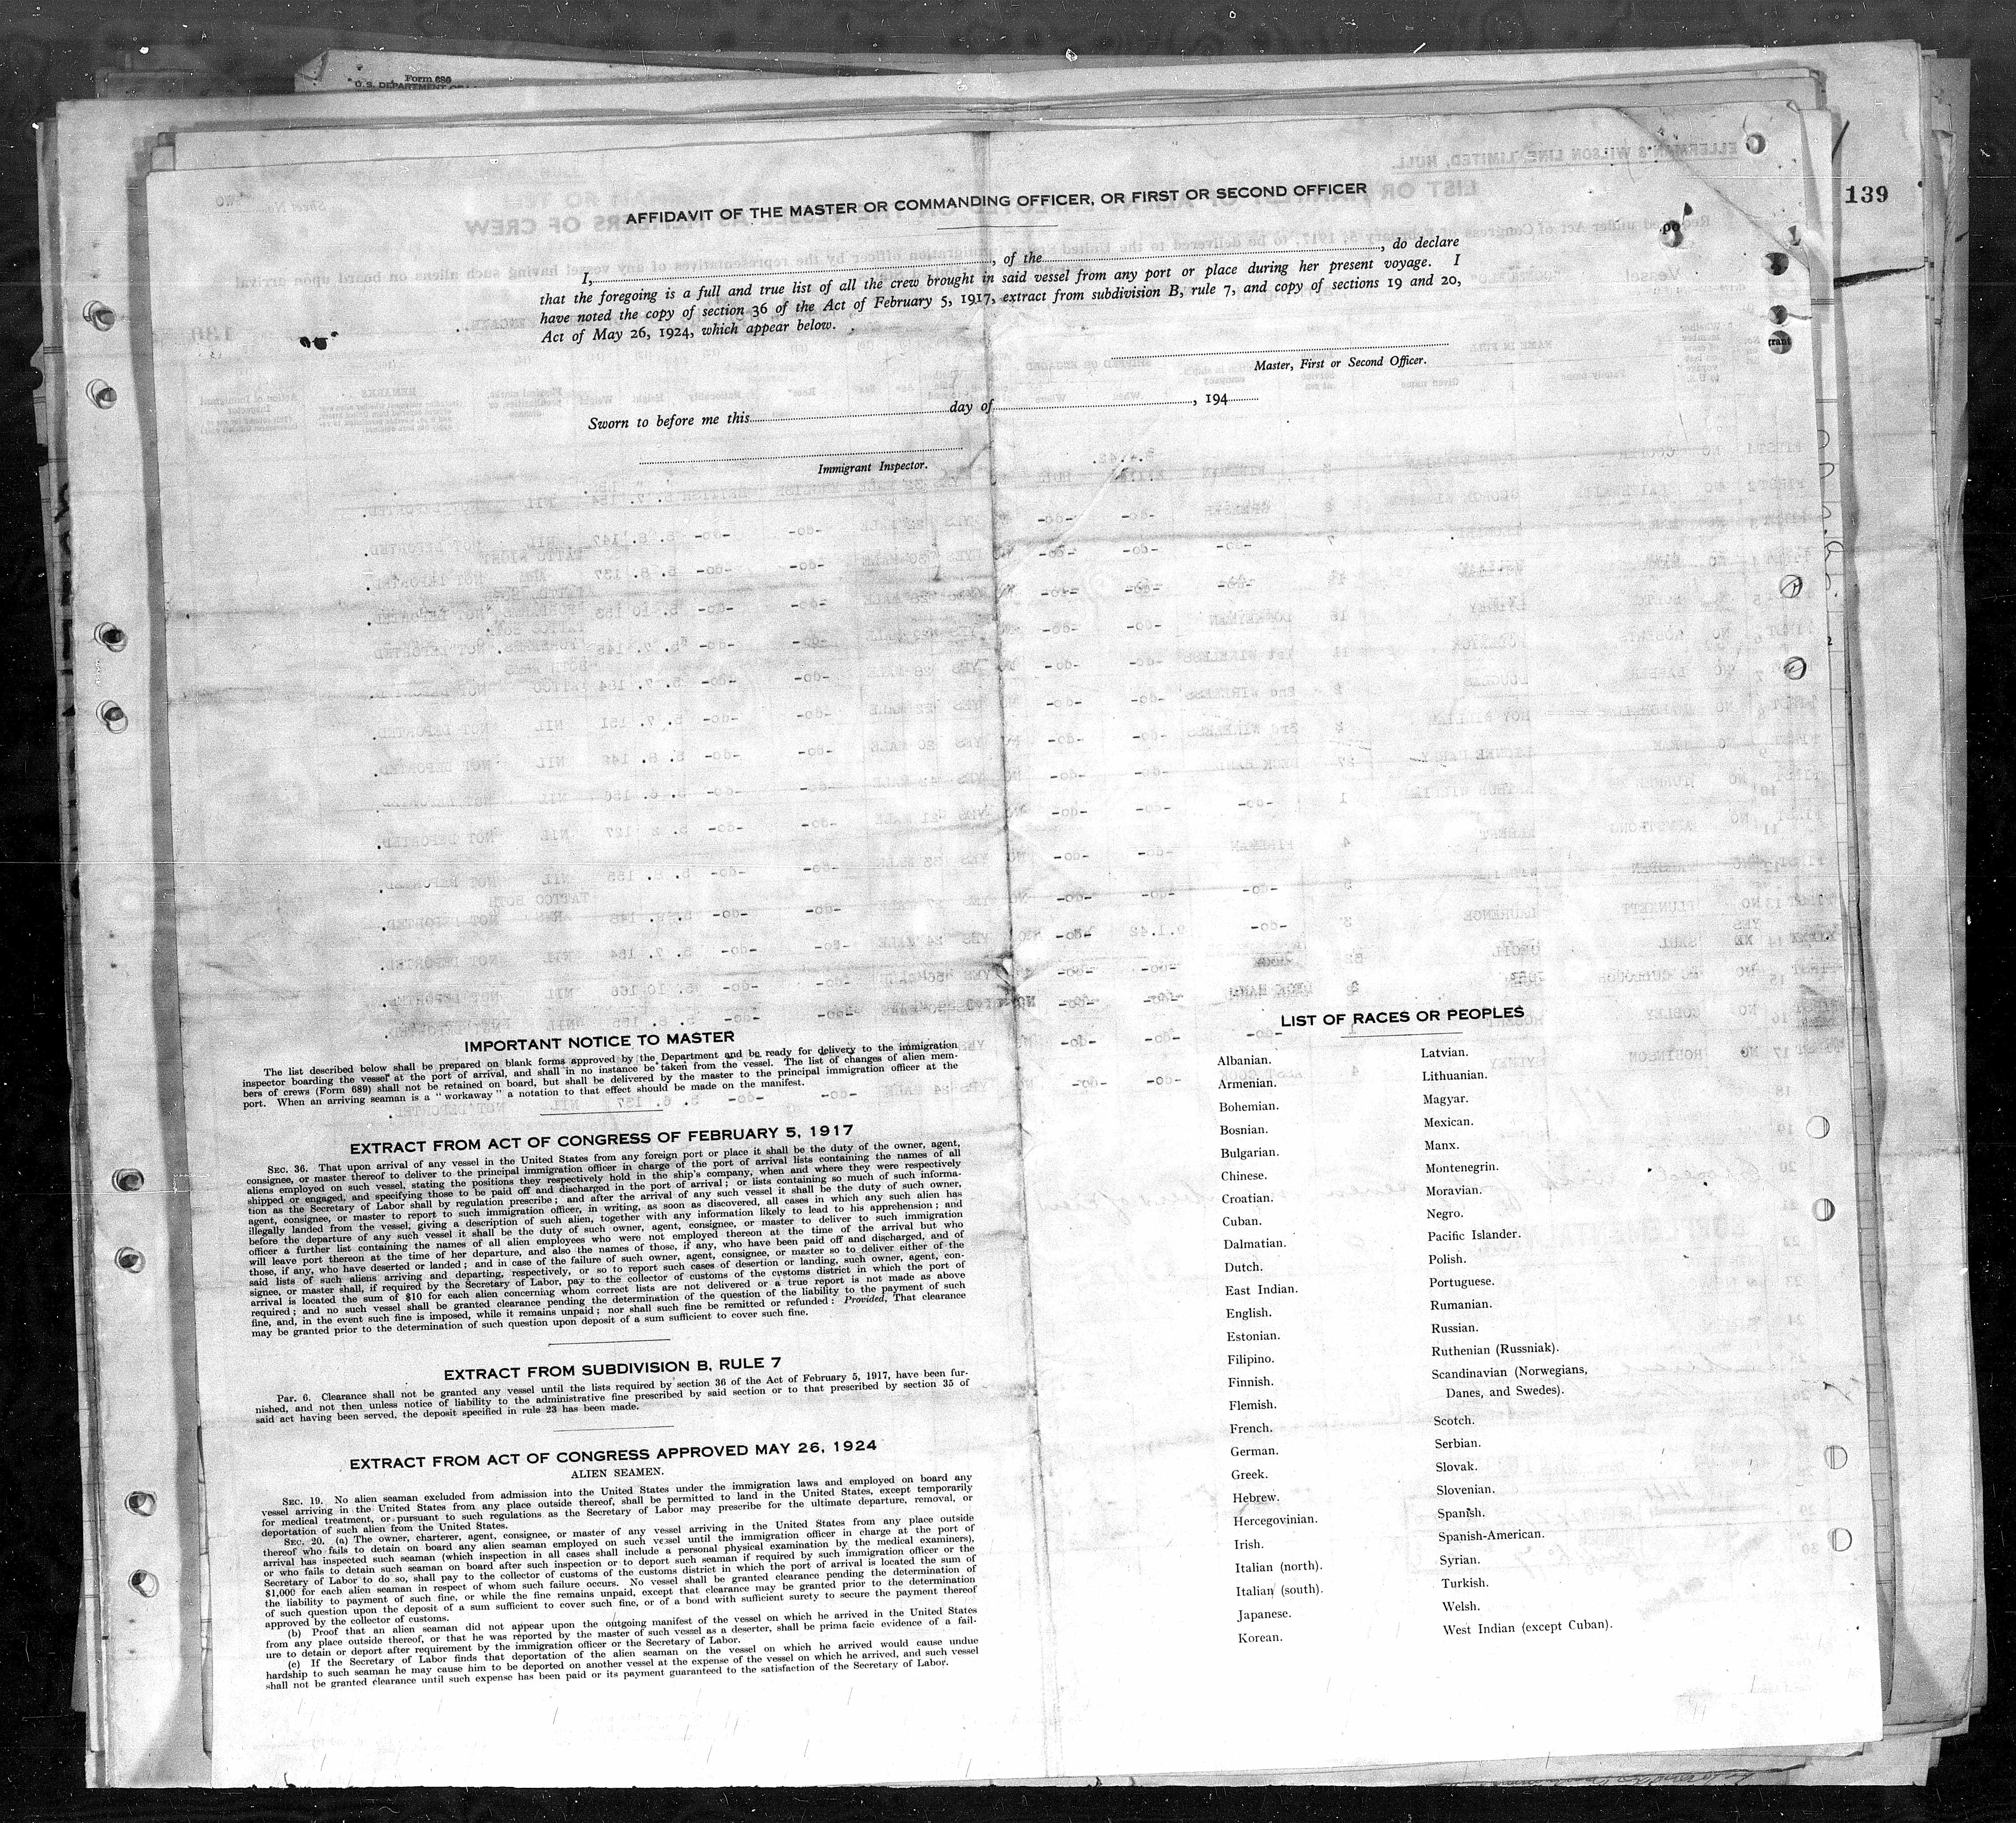 Form 686
U.S. DEPARTMENT OF
139
AFFIDAVIT OF THE MASTER OR COMMANDING OFFICER, OR FIRST OR SECOND OFFICER
I, , of the , do declare
that the foregoing is a full and true list of all the crew brought in said vessel from any port or place during her present voyage. I
have noted the copy of section 36 of the Act of February 5, 1917, extract from subdivision B, rule 7, and copy of sections 19 and 20,
Act of May 26, 1924, which appear below.
Master, First or Second Officer.
Sworn to before me this day of , 194
Immigrant Inspector.
IMPORTANT NOTICE TO MASTER
The list described below shall be prepared on blank forms approved by the Department and be ready for delivery to the immigration
inspector boarding the vessel at the port of arrival, and shall in no instance be taken from the vessel. The list of changes of alien mem-
bers of crews (Form 689) shall not be retained on board, but shall be delivered by the master to the principal immigration officer at the
port. When an arriving seaman is a "workaway" a notation to that effect should be made on the manifest.
EXTRACT FROM ACT OF CONGRESS OF FEBRUARY 5, 1917
SEC. 36. That upon arrival of any vessel in the United States from any foreign port or place it shall be the duty of the owner, agent,
consignee, or master thereof to deliver to the principal immigration officer in charge of the port of arrival lists containing the names of all
aliens employed on such vessel, stating the positions they respectively hold in the ship's company, when and where they were respectively
shipped or engaged, and specifying those to be paid off and discharged in the port of arrival; or lists containing so much of such informa-
tion as the Secretary of Labor shall by regulation prescribe; and after the arrival of any such vessel it shall be the duty of such owner,
agent, consignee, or master to report to such immigration officer, in writing, as soon as discovered, all cases in which any such alien has
illegally landed from the vessel, giving a description of such alien, together with any information likely to lead to his apprehension; and
before the departure of any such vessel it shall be the duty of such owner, agent, consignee, or master to deliver to such immigration
officer a further list containing the names of all alien employees who were not employed thereon at the time of the arrival but who
will leave port thereon at the time of her departure, and also the names of those, if any, who have been paid off and discharged, and of
those, if any, who have deserted or landed; and in case of the failure of such owner, agent, consignee, or master so to deliver either of the
said lists of such aliens arriving and departing, respectively, or so to report such cases of desertion or landing, such owner, agent, con-
signee, or master shall, if required by the Secretary of Labor, pay to the collector of customs of the customs district in which the port of
arrival is located the sum of $10 for each alien concerning whom correct lists are not delivered or a true report is not made as above
required; and no such vessel shall be granted clearance pending the determination of the question of the liability to the payment of such
fine, and, in the event such fine is imposed, while it remains unpaid; nor shall such fine be remitted or refunded: Provided, That clearance
may be granted prior to the determination of such question upon deposit of a sum sufficient to cover such fine.
EXTRACT FROM SUBDIVISION B, RULE 7
Par. 6. Clearance shall not be granted any vessel until the lists required by section 36 of the Act of February 5, 1917, have been fur-
nished, and not then unless notice of liability to the administrative fine prescribed by said section or to that prescribed by section 35 of
said act having been served, the deposit specified in rule 23 has been made.
EXTRACT FROM ACT OF CONGRESS APPROVED MAY 26, 1924
ALIEN SEAMEN.
SEC. 19. No alien seaman excluded from admission into the United States under the immigration laws and employed on board any
vessel arriving in the United States from any place outside thereof, shall be permitted to land in the United States, except temporarily
for medical treatment, or pursuant to such regulations as the Secretary of Labor may prescribe for the ultimate departure, removal, or
deportation of such alien from the United States.
SEC. 20. (a) The owner, charterer, agent, consignee, or master of any vessel arriving in the United States from any place outside
thereof who fails to detain on board any alien seaman employed on such vessel until the immigration officer in charge at the port of
arrival has inspected such seaman (which inspection in all cases shall include a personal physical examination by the medical examiners),
or who fails to detain such seaman on board after such inspection or to deport such seaman if required by such immigration officer or the
Secretary of Labor to do so, shall pay to the collector of customs of the customs district in which the port of arrival is located the sum of
$1,000 for each alien seaman in respect of whom such failure occurs. No vessel shall be granted clearance pending the determination of
the liability to payment of such fine, or while the fine remains unpaid, except that clearance may be granted prior to the determination
of such question upon the deposit of a sum sufficient to cover such fine, or of a bond with sufficient surety to secure the payment thereof
approved by the collector of customs.
(b) Proof that an alien seaman did not appear upon the outgoing manifest of the vessel on which he arrived in the United States
from any place outside thereof, or that he was reported by the master of such vessel as a deserter, shall be prima facie evidence of a fail-
ure to detain or deport after requirement by the immigration officer or the Secretary of Labor.
(c) If the Secretary of Labor finds that deportation of the alien seaman on the vessel on which he arrived would cause undue
hardship to such seaman he may cause him to be deported on another vessel at the expense of the vessel on which he arrived, and such vessel
shall not be granted clearance until such expense has been paid or its payment guaranteed to the satisfaction of the Secretary of Labor.
LIST OF RACES OR PEOPLES
Albanian.
Armenian.
Bohemian.
Bosnian.
Bulgarian.
Chinese.
Croatian.
Cuban.
Dalmatian.
Dutch.
East Indian.
English.
Estonian.
Filipino.
Finnish.
Flemish.
French.
German.
Greek.
Hebrew.
Hercegovinian.
Irish.
Italian (north).
Italian (south).
Japanese.
Korean.
Latvian.
Lithuanian.
Magyar.
Mexican.
Manx.
Montenegrin.
Moravian.
Negro.
Pacific Islander.
Polish.
Portuguese.
Rumanian.
Russian.
Ruthenian (Russniak).
Scandinavian (Norwegians,
Danes, and Swedes).
Scotch.
Serbian.
Slovak.
Slovenian.
Spanish.
Spanish-American.
Syrian.
Turkish.
Welsh.
West Indian (except Cuban).